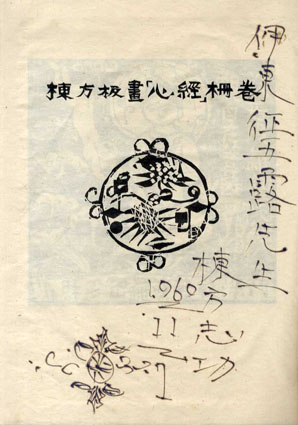 棟方板畫「心經」柵卷
伊東征五露先生
棟方志功
1960.
11